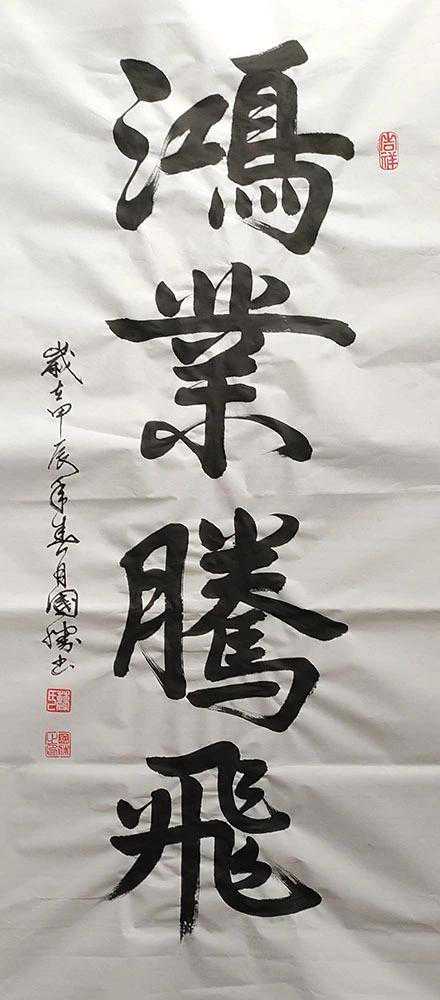 鴻業騰飛
歲在甲辰年春月國勝書
吉祥